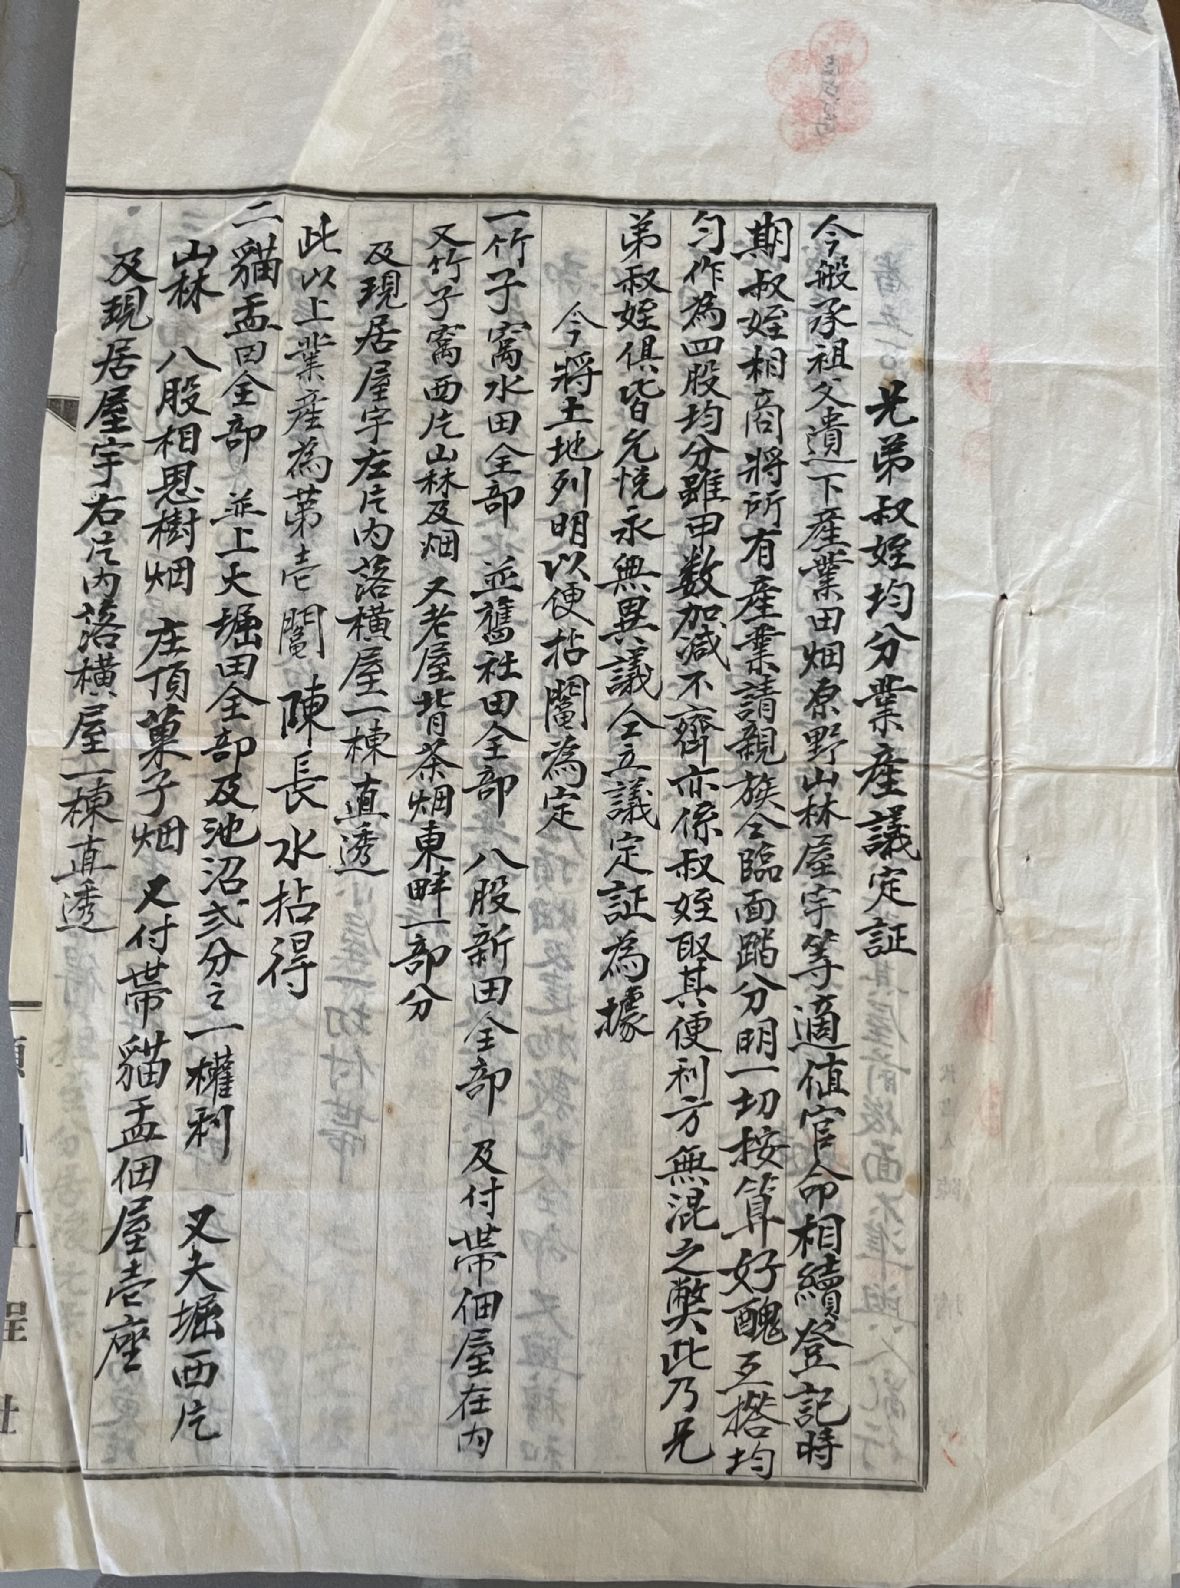 兄弟叔姪均分業產議定証
今般承祖父遺下產業田烟原野山林屋宇等適值官命相續登記時
期叔姪相商將所有產業請親族仝臨面踏分明一切按算好醜互搭均
勻作為四股均分雖甲数加减不齊亦係叔姪取其便利方無混之弊此乃兄
弟叔姪俱皆允悅永無異議仝立議定証為據
今將土地列明以便拈鬮為定
一竹子窩水田全部 並舊社田全部 八股新田全部 及付帶佃屋在內
又竹子窩西片山林及烟 又老屋背茶烟東畔一部分
及現居屋宇左片內落橫屋一棟直透
此以上業產為第壱鬮 陳長水拈得
二貓盂田全部 並上大堀田全部及池沼弍分之一權利 又大堀西片
山林 八股相思樹烟 庄頂菓子烟 又付帶貓盂佃屋壱座
及現居屋宇右片內落橫屋一棟直透